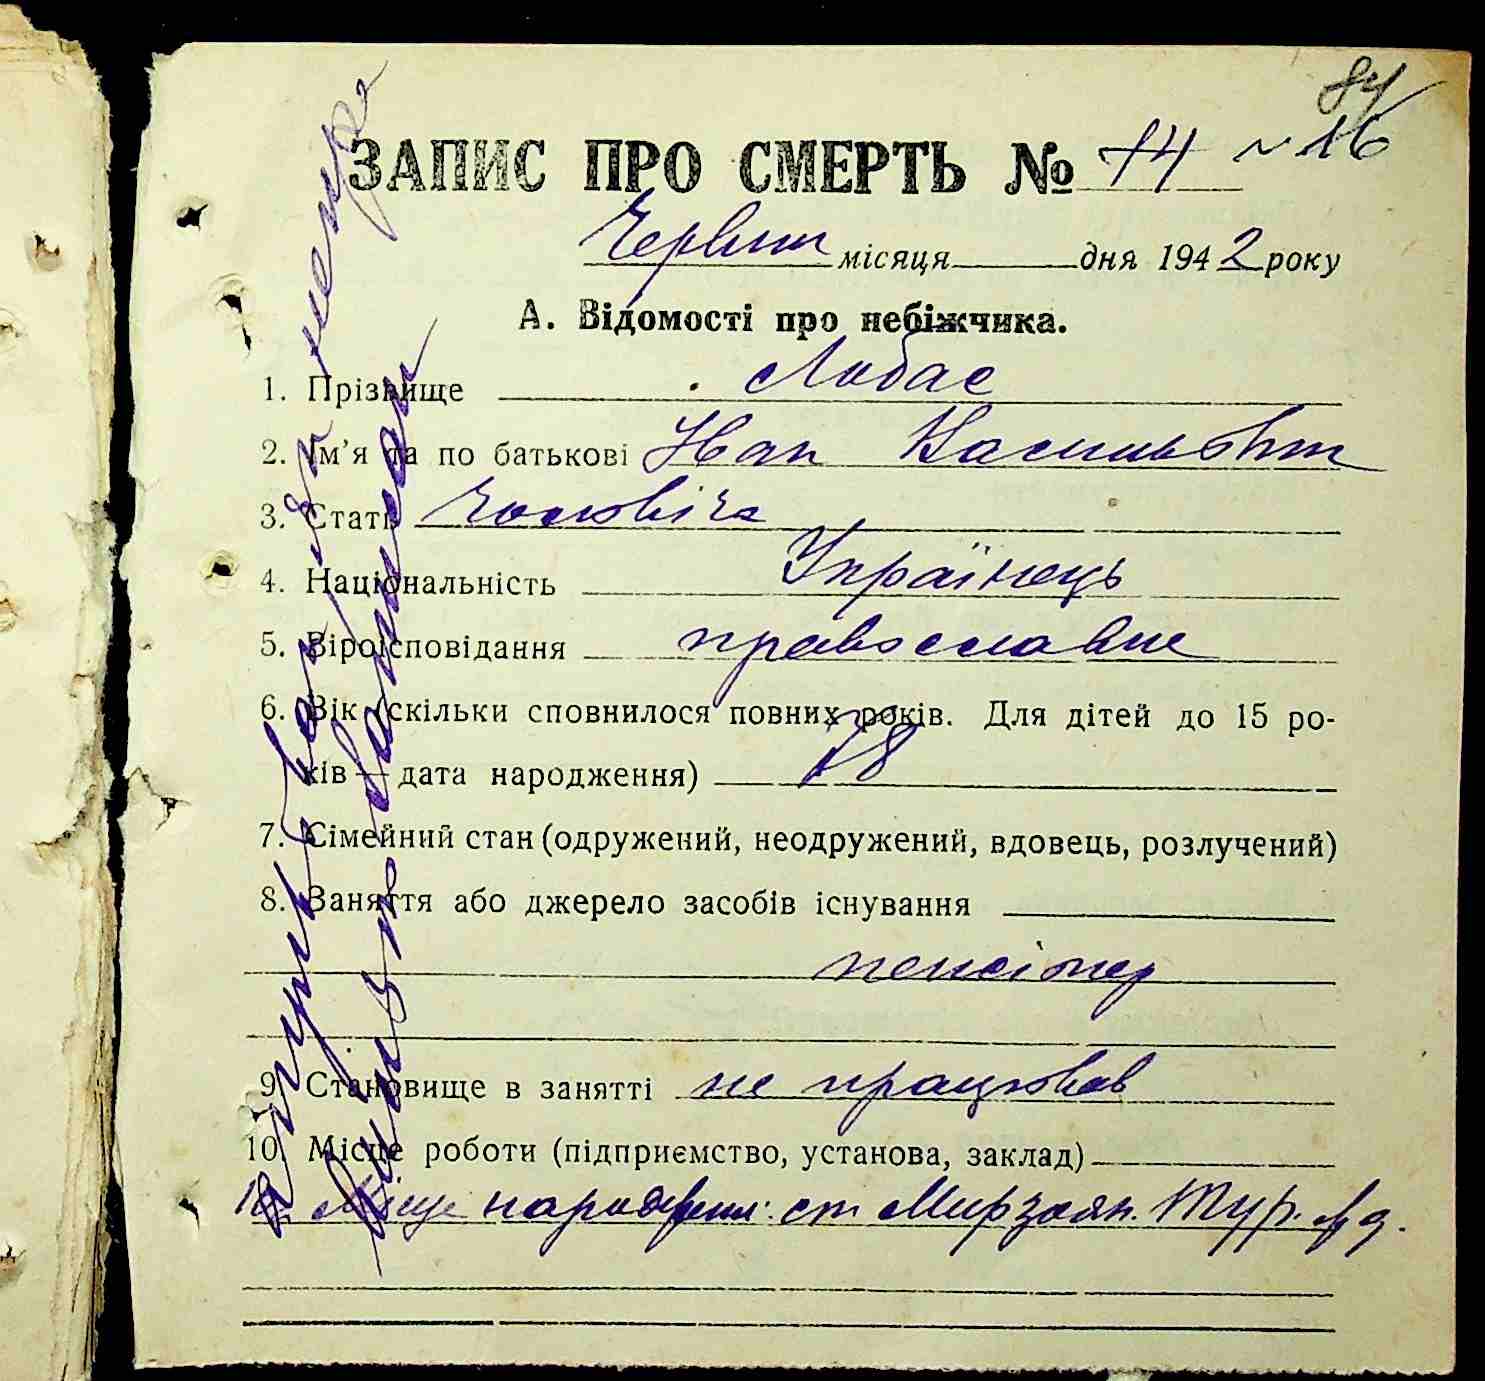 84
ЗАПИС ПРО СМЕРТЬ № 14 ~ 16
Червня місяця дня 1942 року
А. Відомості про небіжчика.
1. Прізвище Лобас
2. Ім'я та по батькові Іван Васильович
3. Стать чоловіча
4. Національність Українець
5. Віроісповідання православне
6. Вік (скільки сповнилося повних років. Для дітей до 15 ро-
ків — дата народження) 78
7. Сімейний стан (одружений, неодружений, вдовець, розлучений)
8. Заняття або джерело засобів існування
пенсіонер
9. Становище в занятті не працював
10. Місце роботи (підприємство, установа, заклад)
Місце народження: ст Мирзоян. Тур.